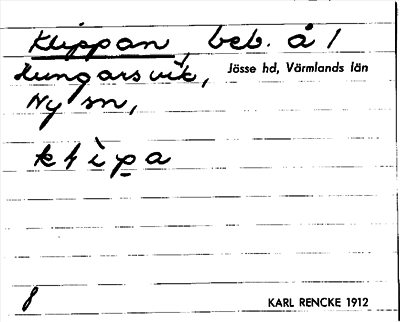 Klippan, beb. å 1
Kungarsvik, Jösse hd, Värmlands län
Ny sn,
8 KARL RENCKE 1912